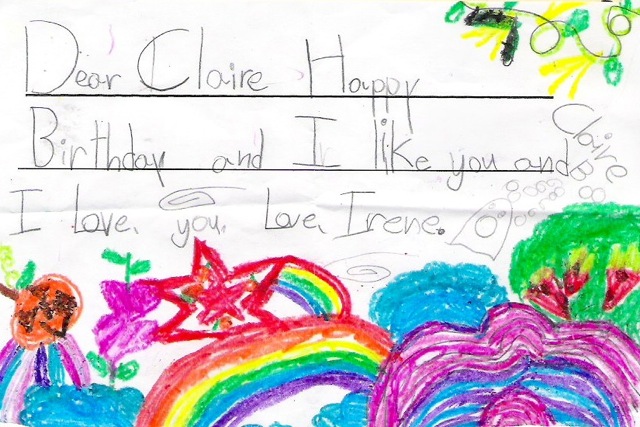 Dear Claire Happy
Birthday and I like you and
I Love. you. Love. Irene.
Claire